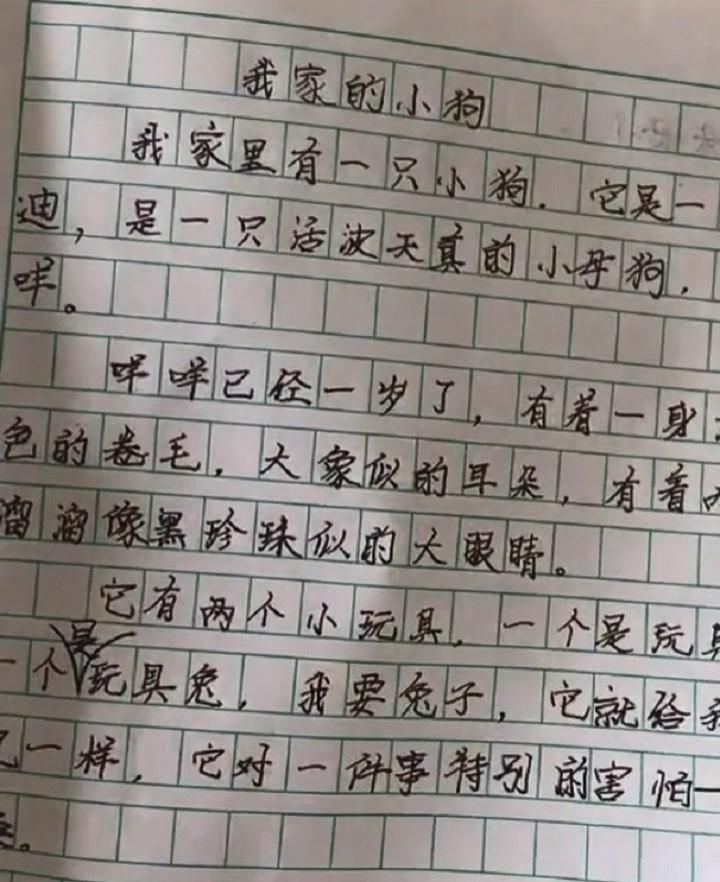 我家的小狗
我家里有一只小狗．它是一
迪，是一只活泼天真的小母狗，
咩。
咩咩已经一岁了，有着一身
色的卷毛，大象似的耳朵，有着
溜溜像黑珍珠似的大眼睛。
它有两个小玩具，一个是玩
一个是玩具兔，我要兔子，它就给
一样，它对一件事特别的害怕一
。